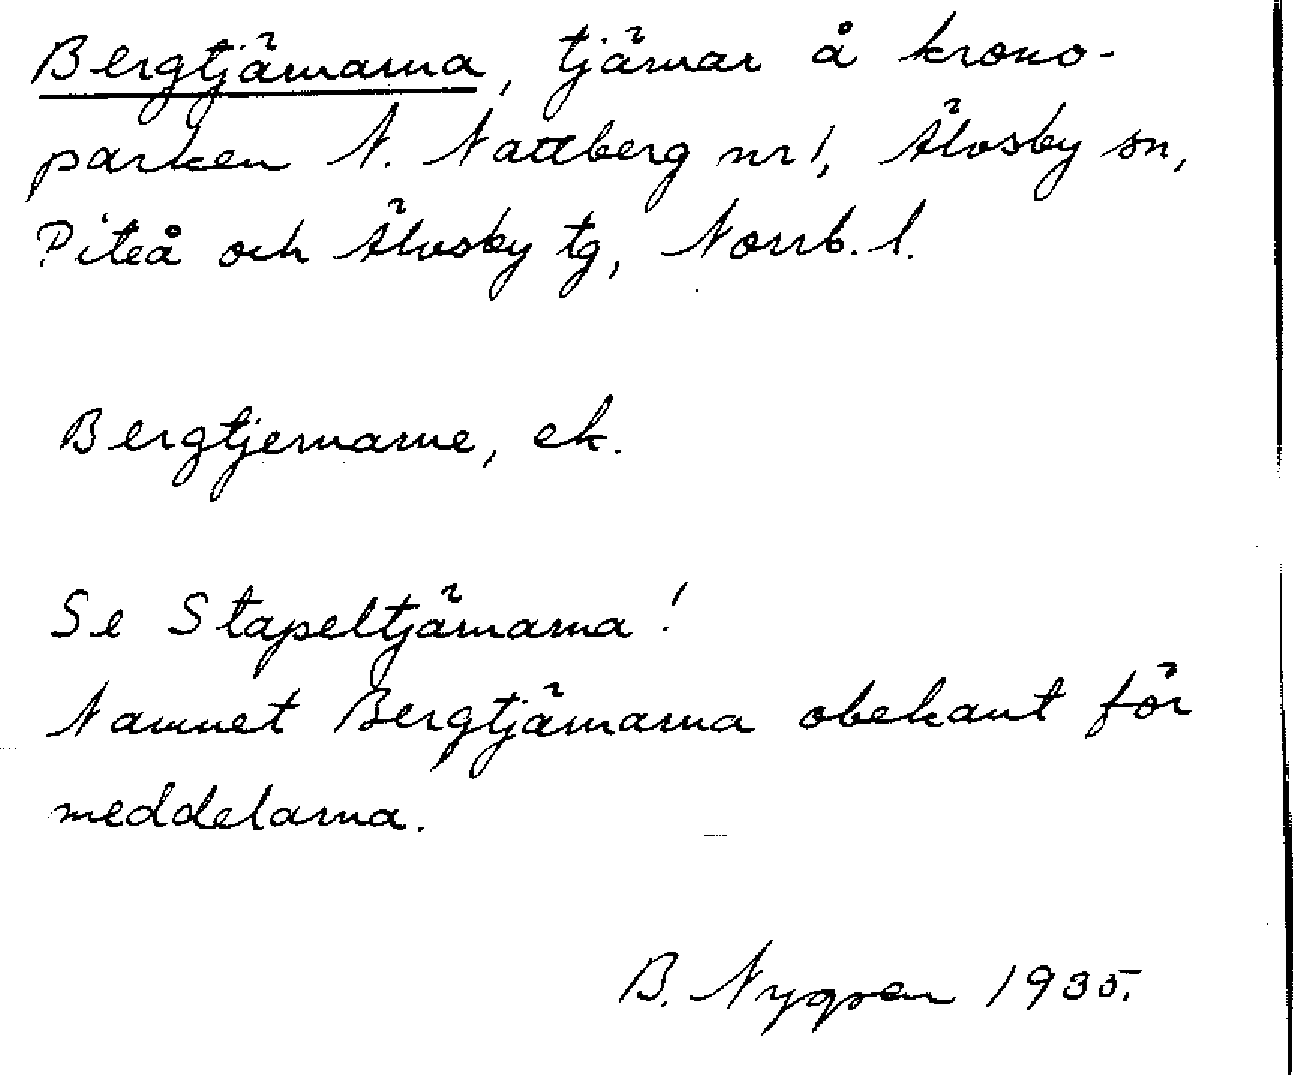 Bergtjärnarna, tjärnar å krono-
parken N. Nattberg nr 1, Älvsby sn,
Piteå och Älvsby tg, Norrb. l.
Bergtjernarne, ek.
Se Stapeltjärnarna!
Namnet Bergtjärnarna obekant för
meddelarna.
B. Nygren 1935.